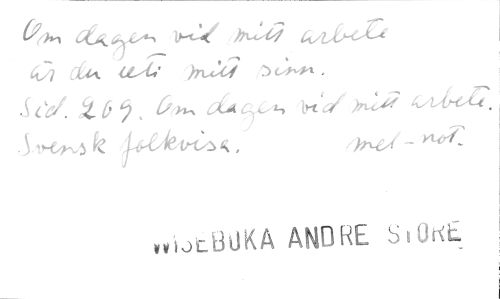 Om dagen vid mitt arbete
är du uti mitt sinn.
Sid. 209. Om dagen vid mitt arbete.
Svensk folkvisa. mel-not.
WISEBOKA ANDRE STORE